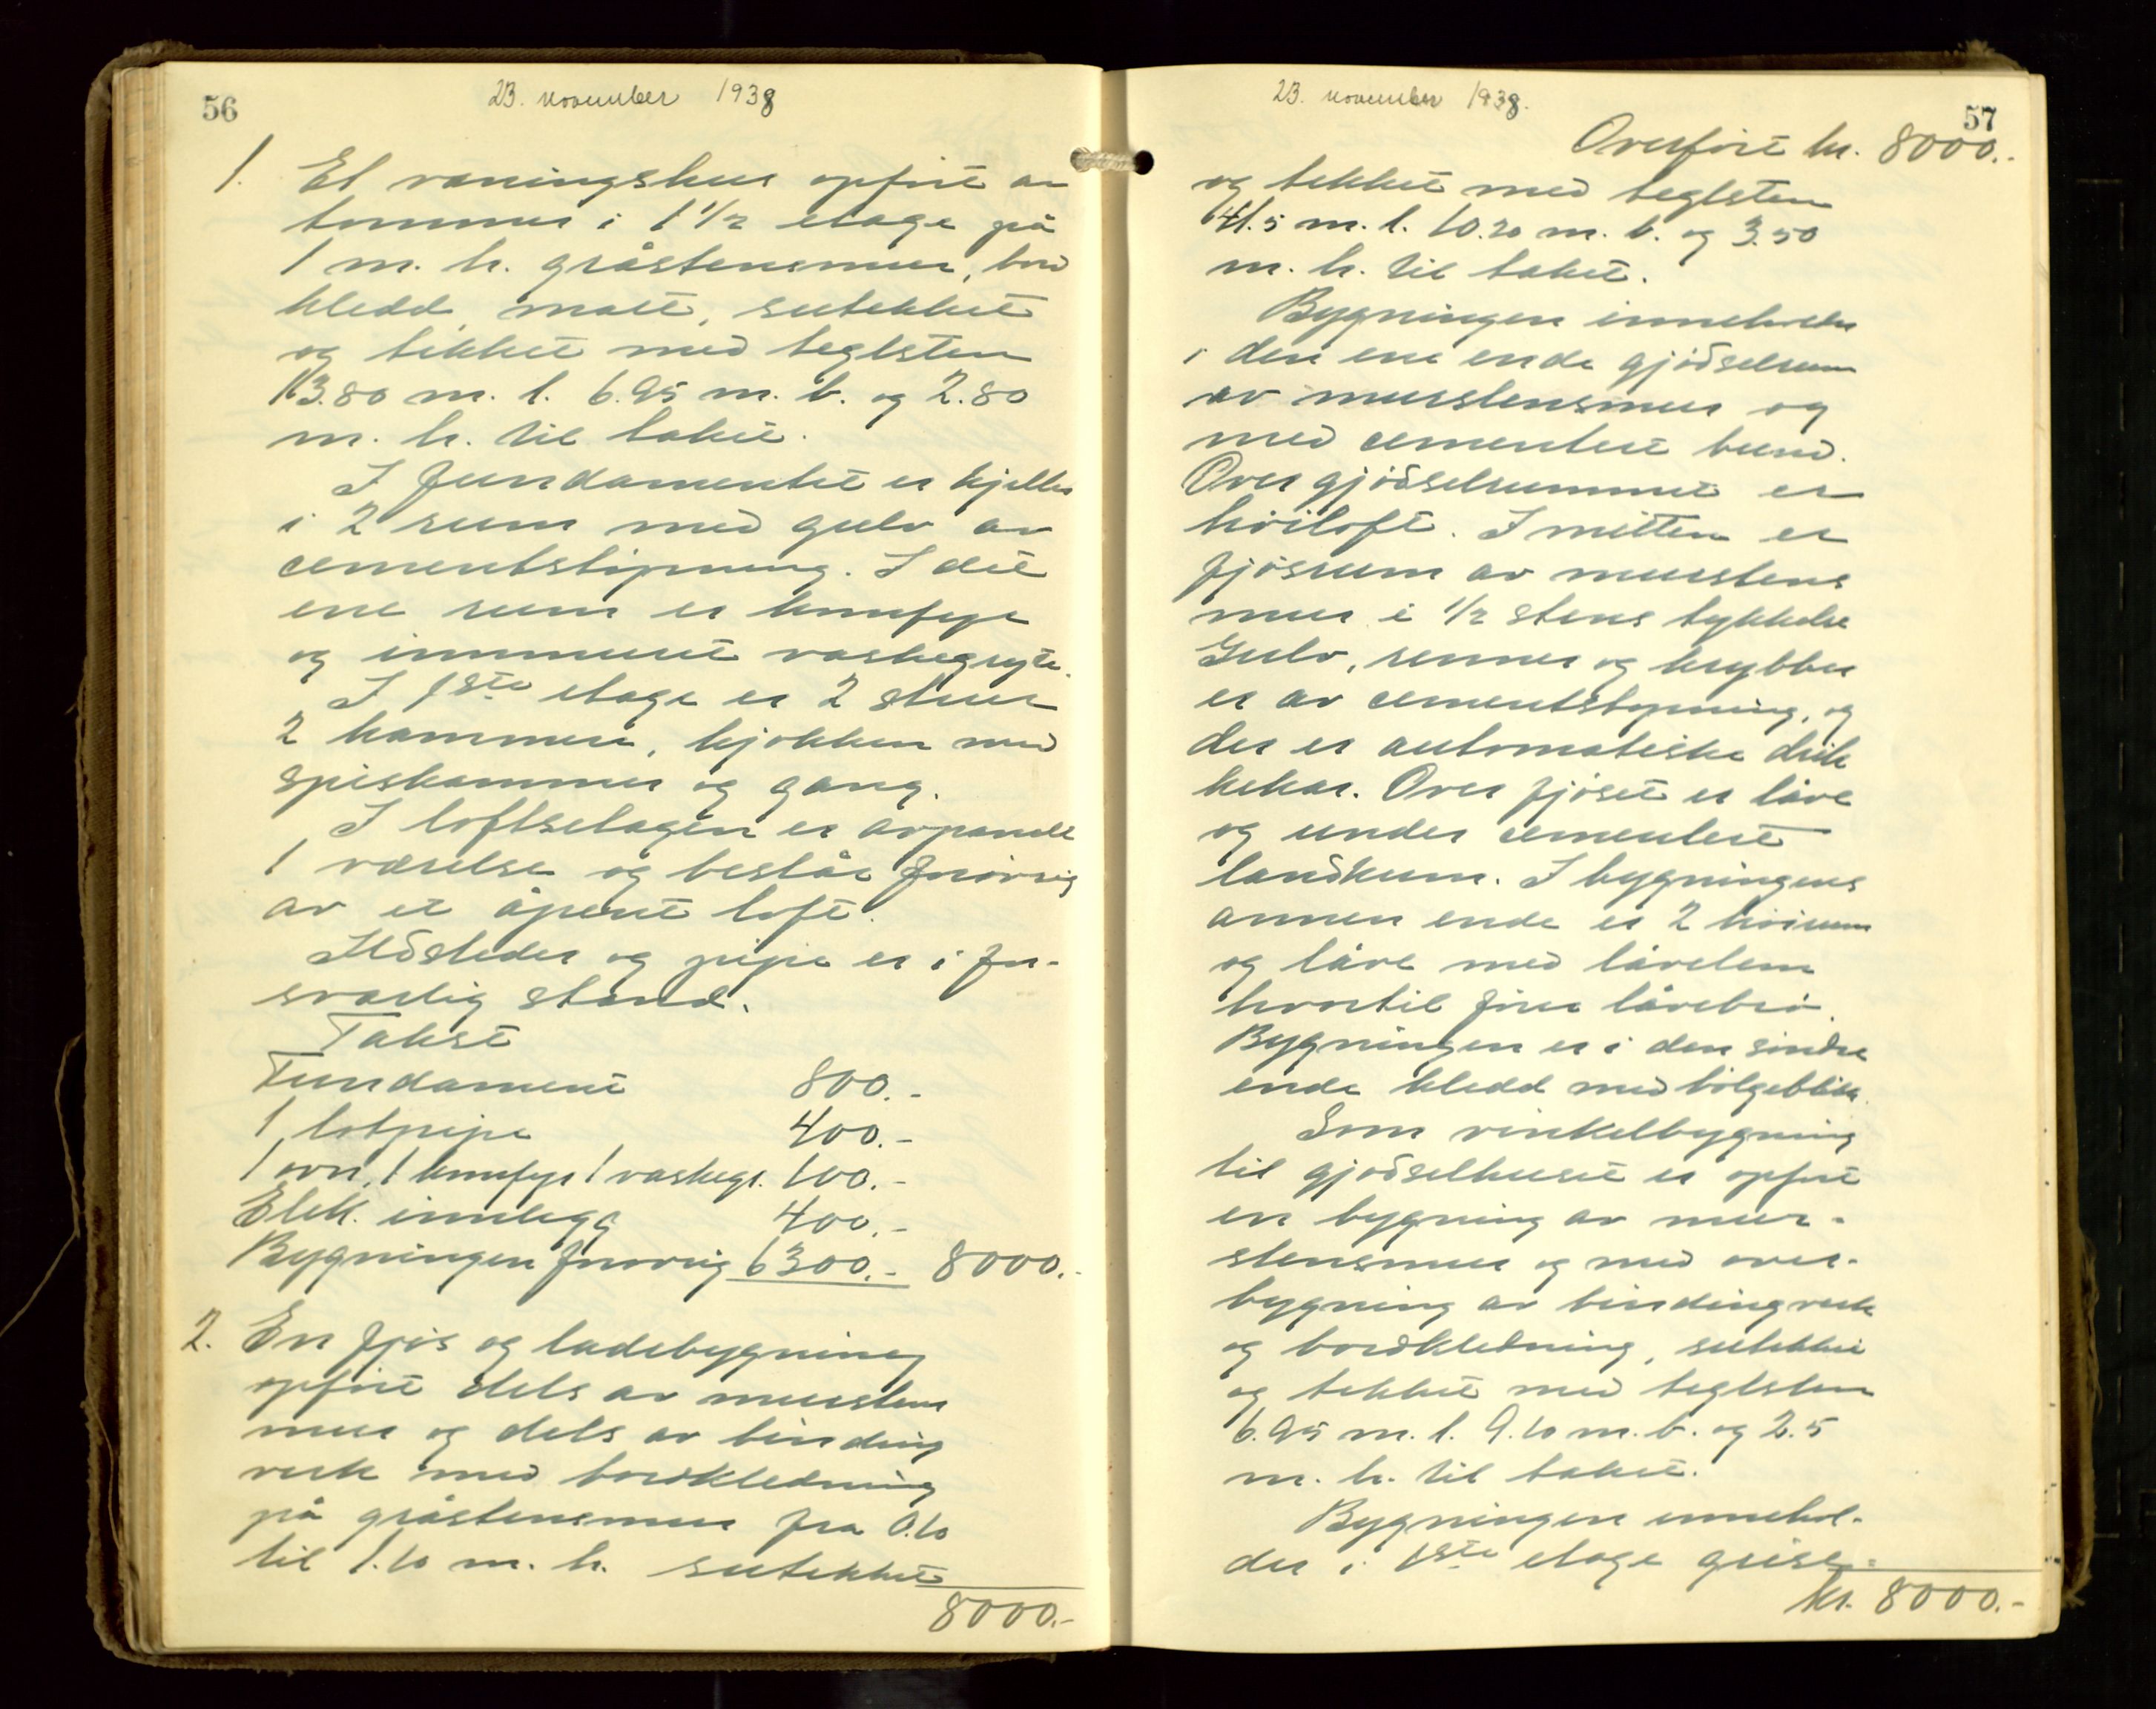 56
23. november 1938
1. Et våningshus opført av
tømmer i 1 1/2 etage på
1 m. h. gråstensmur, bord
kledd, malt, sutekket
og tekket med teglsten
13.80 m. l. 6.95 m. b. og 2.80
m. h. til taket.
I fundamentet er kjeller
i 2 rum med gulv av
cementstøpning. I det
ene rum er komfyr
og innmuret vaskegryte.
I 1ste etage er 2 stuer
2 kammers, kjøkken med
spiskammer og gang.
I loftsetagen er avpanelt
1 værelse og består forøvrig
av et åpent loft.
Ildsteder og pipe er i for-
svarlig stand.
Takst
Fundament 800.-
1 løtpipe 400.-
1 ovn, 1 komfyr 1 vaskegr. 100.-
Elek. innlegg 400.-
Bygningen forøvrig 6300.- 8000.-
2. En fjøs og ladebygning
opført dels av murstens
mur og dels av binding
verk med bordkledning
på gråstensmur fra 0.10
til 1.10 m. h. sutekket
8000.-
23. november 1938.
57
Overført kr. 8000.-
og tekket med teglsten
41.5 m. l. 10.20 m. b. og 3.50
m. h. til taket.
Bygningen inneholder
i den ene ende gjødselrum
av murstensmur og
med cementert bund.
Over gjødselrummet er
høiloft. I mitten er
fjøsrum av murstens
mur i 1/2 stens tykkelse
Gulv, renner og krybber
er av cementstøpning, og
der er automatiske drik
kekar. Over fjøset er låve
og under cementert
landkum. I bygningens
annen ende er 2 høirum
og låve med låvelem
hvortil fører låvebrø.
Bygningen er i den søndre
ende kledd med bølgeblikk.
Som vinkelbygning
til gjødselhuset er opført
en bygning av mur-
stensmur og med over-
bygning av bindingverk
og bordkledning, sutekket
og tekket med teglsten
6.95 m. l. 9.10 m. b. og 2.5
m. h. til taket.
Bygningen innehol-
der i 1ste etage grise-
kr. 8000.-